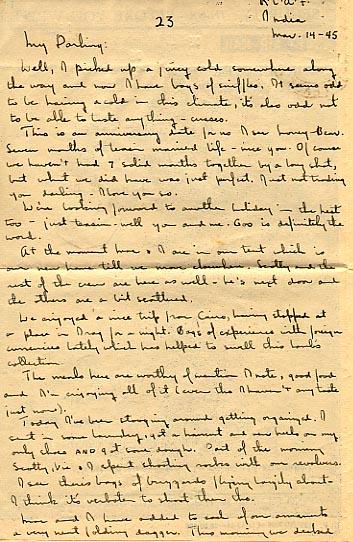 23
R.C.A.F.
India
Mar. 14-45
My Darling:
Well, I picked up a juicy cold somewhere along
the way and now I have bags of sniffles. It seems odd
to be having a cold in this climate, its also odd not
to be able to taste anything - cusses.
This is an anniversary date for us I see honey-Bear.
Seven months of married life - nice you. Of course
we haven't had 7 solid months together by a long shot,
but what we did have was just perfect. Just not
you darling - I love you so.
We're looking forward to another holiday in the
too - just - well you and me. Goo is definitely the
word.
At the moment I are in our tent which is
our new home till we move elsewhere. Scotty and the
rest of the crew are here as well - he's next door and
the others are a bit scattered.
We enjoyed a nice trip from Cairo, having stopped at
a place in Iraq for a night. Bags of experience with foreign
currencies lately which has helped to swell this
collection
The meals here are worthy of mention Snooks, good food
and I'm enjoying all of it (even tho I haven't any taste
just now).
Today I've been staying around getting organized. I
sent in some laundry, got a haircut and new heels on my
only shoes AND got some dough. Part of the morning
Scotty, Vic & I spent shooting rocks with our revolvers.
I see there's bags of buzzards flying around about -
I think its verboten to shoot them tho.
and I have added to each of our armaments
a very neat folding dagger. This morning we